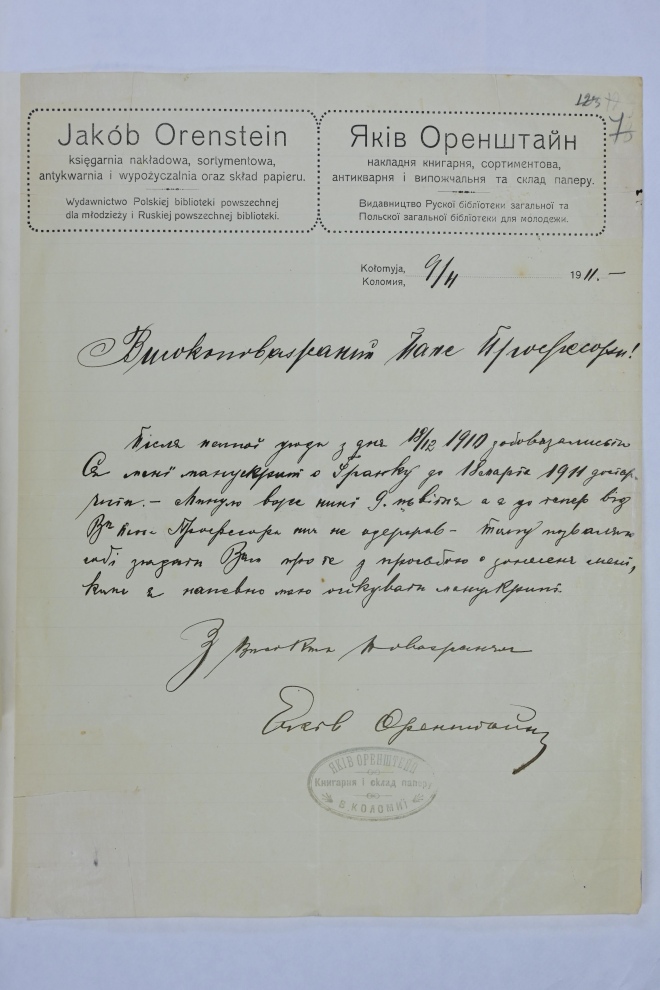 123
7
Jakób Orenstein
księgarnia nakładowa, sortymentowa,
antykwarnia i wypożyczalnia oraz skład papieru.
Wydawnictwo Polskiej biblioteki powszechnej
dla młodzieży i Ruskiej powszechnej biblioteki.
Яків Оренштайн
накладня книгарня, сортиментова,
антикварня і випожчальня та склад паперу.
Видавництво Рускої бібліотеки загальної та
Польскої загальної бібліотеки для молодежи.
Kołomyja,
Коломия, 9/4 1911.-
Високоповажаний Пане Професоре!
Після нашої угоди з дня 18/12 1910 зобовязалисьте
Ся мені манускрипт о Франку до 18 марта 1911 достар
чити. - Минуло вже нині 9. цьвітня а я до тепер від
Вп. Пана Професора ще не одержав - Тому позваляю
собі звідати Вас про те з просьбою о донесенє мені,
коли я напевно маю очікувати манускрипт.
З високим поважанєм
Яків Оренштайн
ЯКІВ ОРЕНШТЕЙН
Книгарня і склад паперу
В КОЛОМИЇ